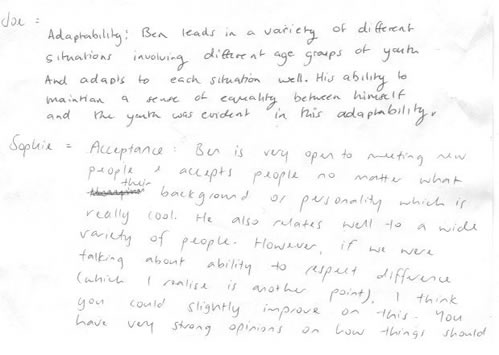 Joe =
Adaptability: Ben leads in a variety of different
situations involving different age groups of youth
And adapts to each situation well. His ability to
maintian a sense of equality between himself
and the youth was evident in this adaptability.
Sophie = Acceptance: Ben is very open to meeting new
people & accepts people no matter what
their background or personality which is
really cool. He also relates well to a wide
variety of people. However, if we were
talking about ability to respect difference
(which I realise is another point), I think
you could slightly improve on this. You
have very strong opinions on how things should